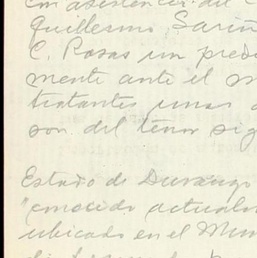 con asistencia del C.
Guillermo Sariñ
C. Rosas un predi
mente ante el m
tratantes unas
son del tenor sig
Estado de Durango
"conocido actualm
ubicado en el Mun